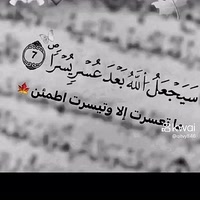 سَيَجْعَلُ ٱللَّهُ بَعْدَ عُسْرٍ يُسْرًا ٧
ما تعسرت إلا وتيسرت اطمئن 🍁
kwai